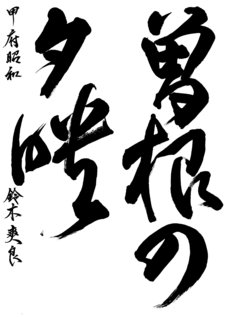 曽根の
夕映
甲府昭和 鈴木爽良